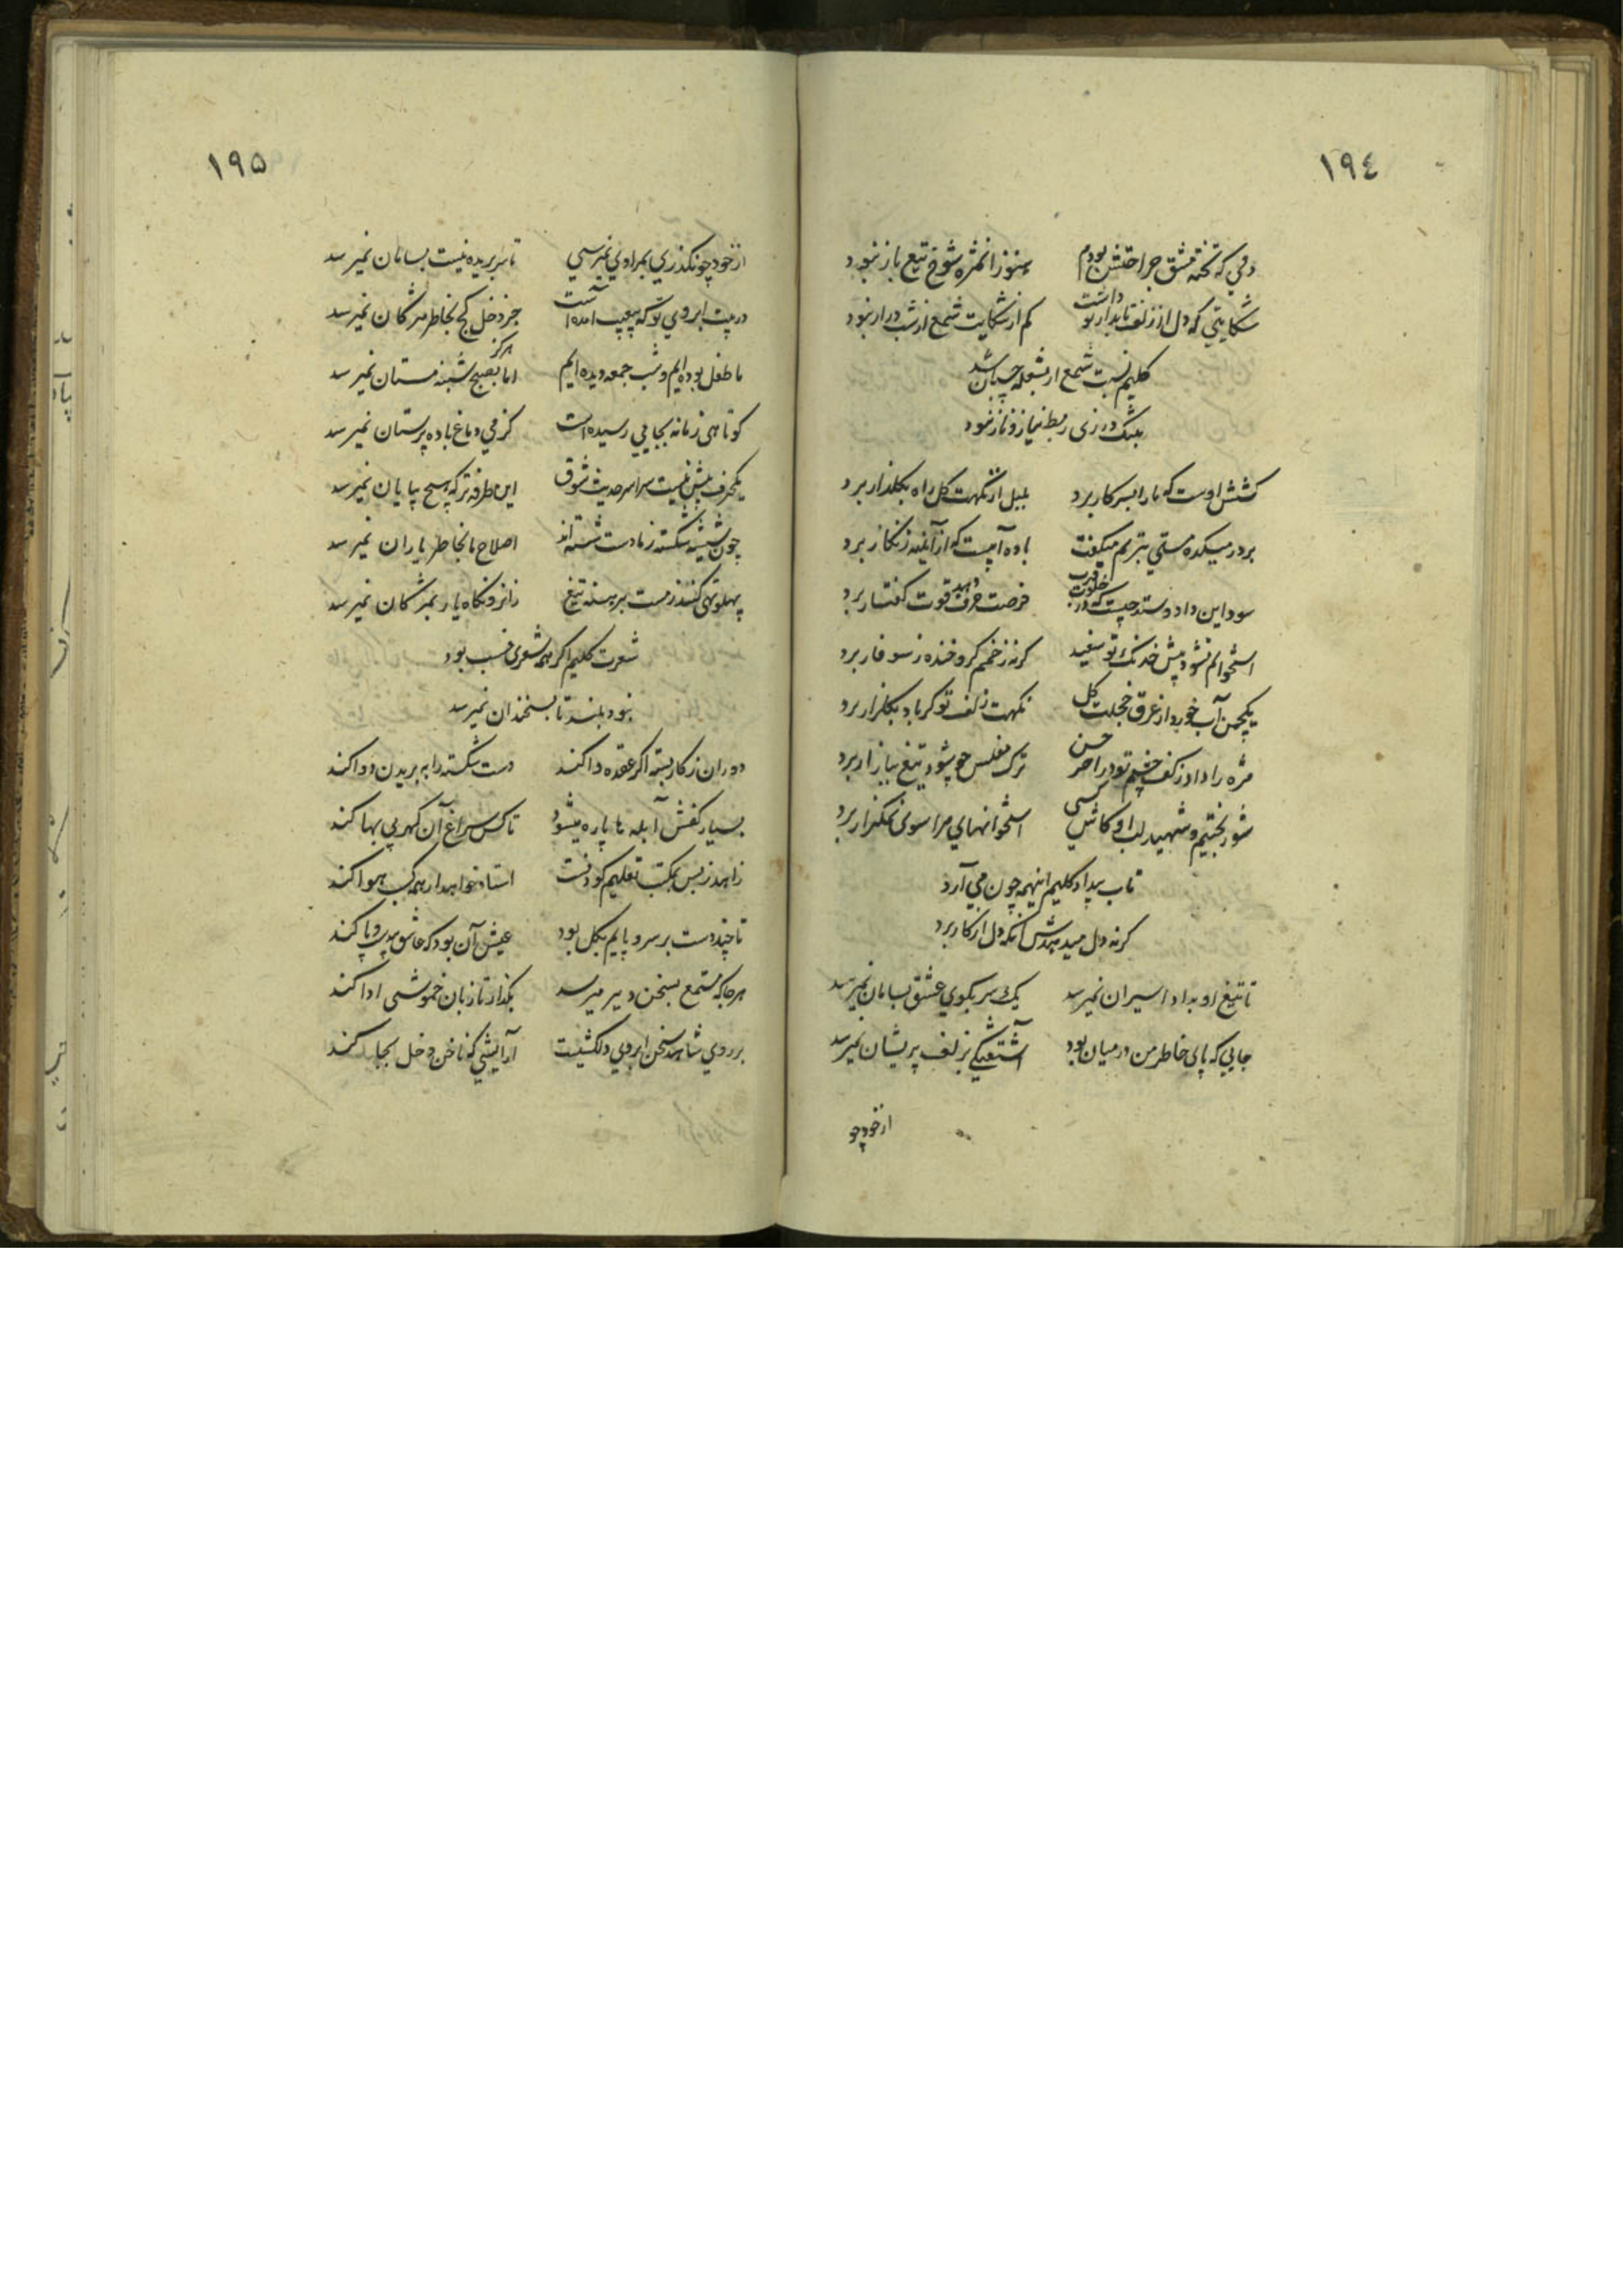 ١٩٤
دمی که تخته مشق جراحتش بودم هنوز از غمزه شوخ تیغ باز نبود
شکایتی که دل از زلف تابدار تو داشت کم از شکایت شمع از شب دراز نبود
کلیم نسبت شمع از بشعله چسپان شد
بلیک در زی ربط نیاز و ناز نبود
کشش اوست که ما را بسر کار برد بلبل از نکهت کل راه بکلزار برد
بر در میکده مستی بترنم میکفت باده آبیست که از آینه زنکار برد
سود این داد و ستد چیست که در خلوت قرب فرصت حرف دهد قوت کفتار برد
استخوانم نشود پیش خدنک تو سفید کر نه زخمم کرو خنده ز سوفار برد
یکچمن آب خورد از عرق خجلت کل نکهت زلف تو کر باد بکلزار برد
مژه را داد ز کف چشم تو در آخر حسن ترک مفلس چو شود تیغ ببازار برد
شور بختیم و شهید لب او کاش کسی استخوانهای مرا سوی نمکزار برد
تاب بیداد کلیم اینهمه چون می آرد
کر نه دل میدهدش آنکه دل از کار برد
تا تیغ او بداد اسیران نمیرسد یک سر بکوی عشق بسامان نمیرسد
جایی که پای خاطر من در میان بود آشفتکی بزلف پریشان نمیرسد
از خود چو
١٩۵
از خود چو نکذری بمرادی نمیرسی تا سر بریده نیست بسامان نمیرسد
در بیت ابروی تو که بیعیب آمده است جز دخل کج بخاطر مژکان نمیرسد
ما طفل بوده ایم و شب جمعه دیده ایم هرکز اما بصبح شنبه مستان نمیرسد
کوتاهی زمانه بجایی رسیده است کز می دماغ باده پرستان نمیرسد
یکحرف بیش نیست سراسر حدیث شوق این طرفه تر که هیچ بپایان نمیرسد
چون شیشه شکسته ز ما دست شسته اند اصلاح ما بخاطر یاران نمیرسد
پهلو تهی کنند ز مست برهنه تیغ زانرو نکاه یار بمژکان نمیرسد
شعرت کلیم اکر همه شعری نسب بود
نبود بلند تا بسخندان نمیرسد
دوران ز کار بسته اکر عقده وا کند دست شکسته را به بریدن دوا کند
بسیار کفش آبله ها پاره میشود تا کس سراغ آن کهر بی بها کند
زاهد ز بس بمکتب تعلیم کودنست استاد خواهد ار همه کسب هوا کند
تا چند دست بر سر و پایم بکل بود عیش آن بود که عاشق بی دست و پا کند
هر جا که مستمع بسخن دیر میرسد بکذار تا زبان خموشی ادا کند
بر روی شاهد سخن ابروی دلکشیست آرایشی که ناخن دخل بجا کند